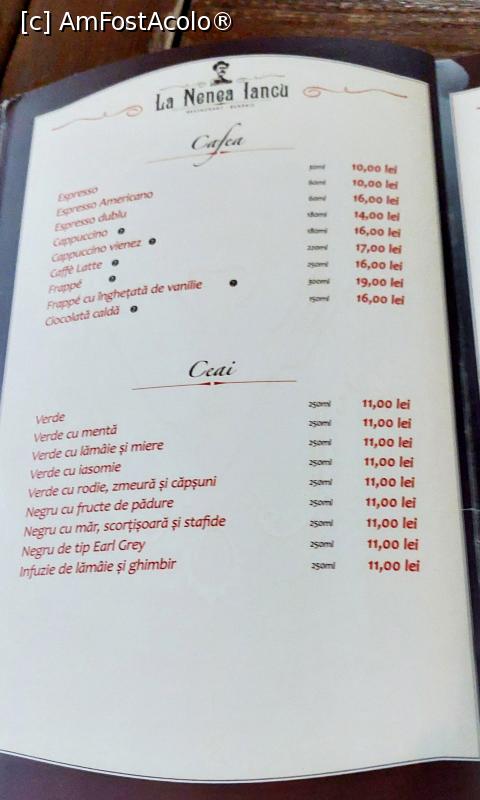 [c] AmFostAcolo®
La Nenea Iancu
Cafea
Espresso 30ml 10,00 lei
Espresso Americano 60ml 10,00 lei
Espresso dublu 60ml 16,00 lei
Cappuccino 180ml 14,00 lei
Cappuccino vienez 180ml 16,00 lei
Caffè Latte 220ml 17,00 lei
Frappé 250ml 16,00 lei
Frappé cu înghețată de vanilie 300ml 19,00 lei
Ciocolată caldă 150ml 16,00 lei
Ceai
Verde 250ml 11,00 lei
Verde cu mentă 250ml 11,00 lei
Verde cu lămâie și miere 250ml 11,00 lei
Verde cu iasomie 250ml 11,00 lei
Verde cu rodie, zmeură și căpșuni 250ml 11,00 lei
Negru cu fructe de pădure 250ml 11,00 lei
Negru cu măr, scorțișoară și stafide 250ml 11,00 lei
Negru de tip Earl Grey 250ml 11,00 lei
Infuzie de lămâie și ghimbir 250ml 11,00 lei